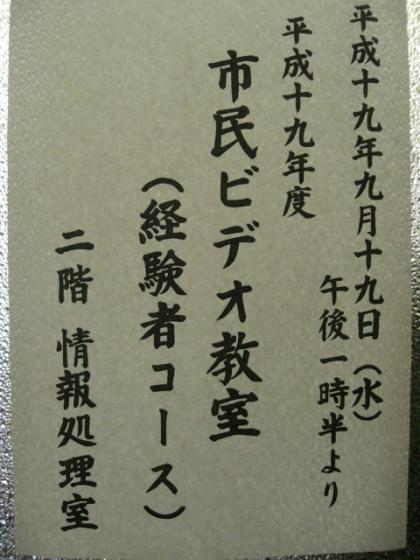 平成十九年九月十九日（水）
午後一時半より
平成十九年度
市民ビデオ教室
（経験者コース）
二階 情報処理室